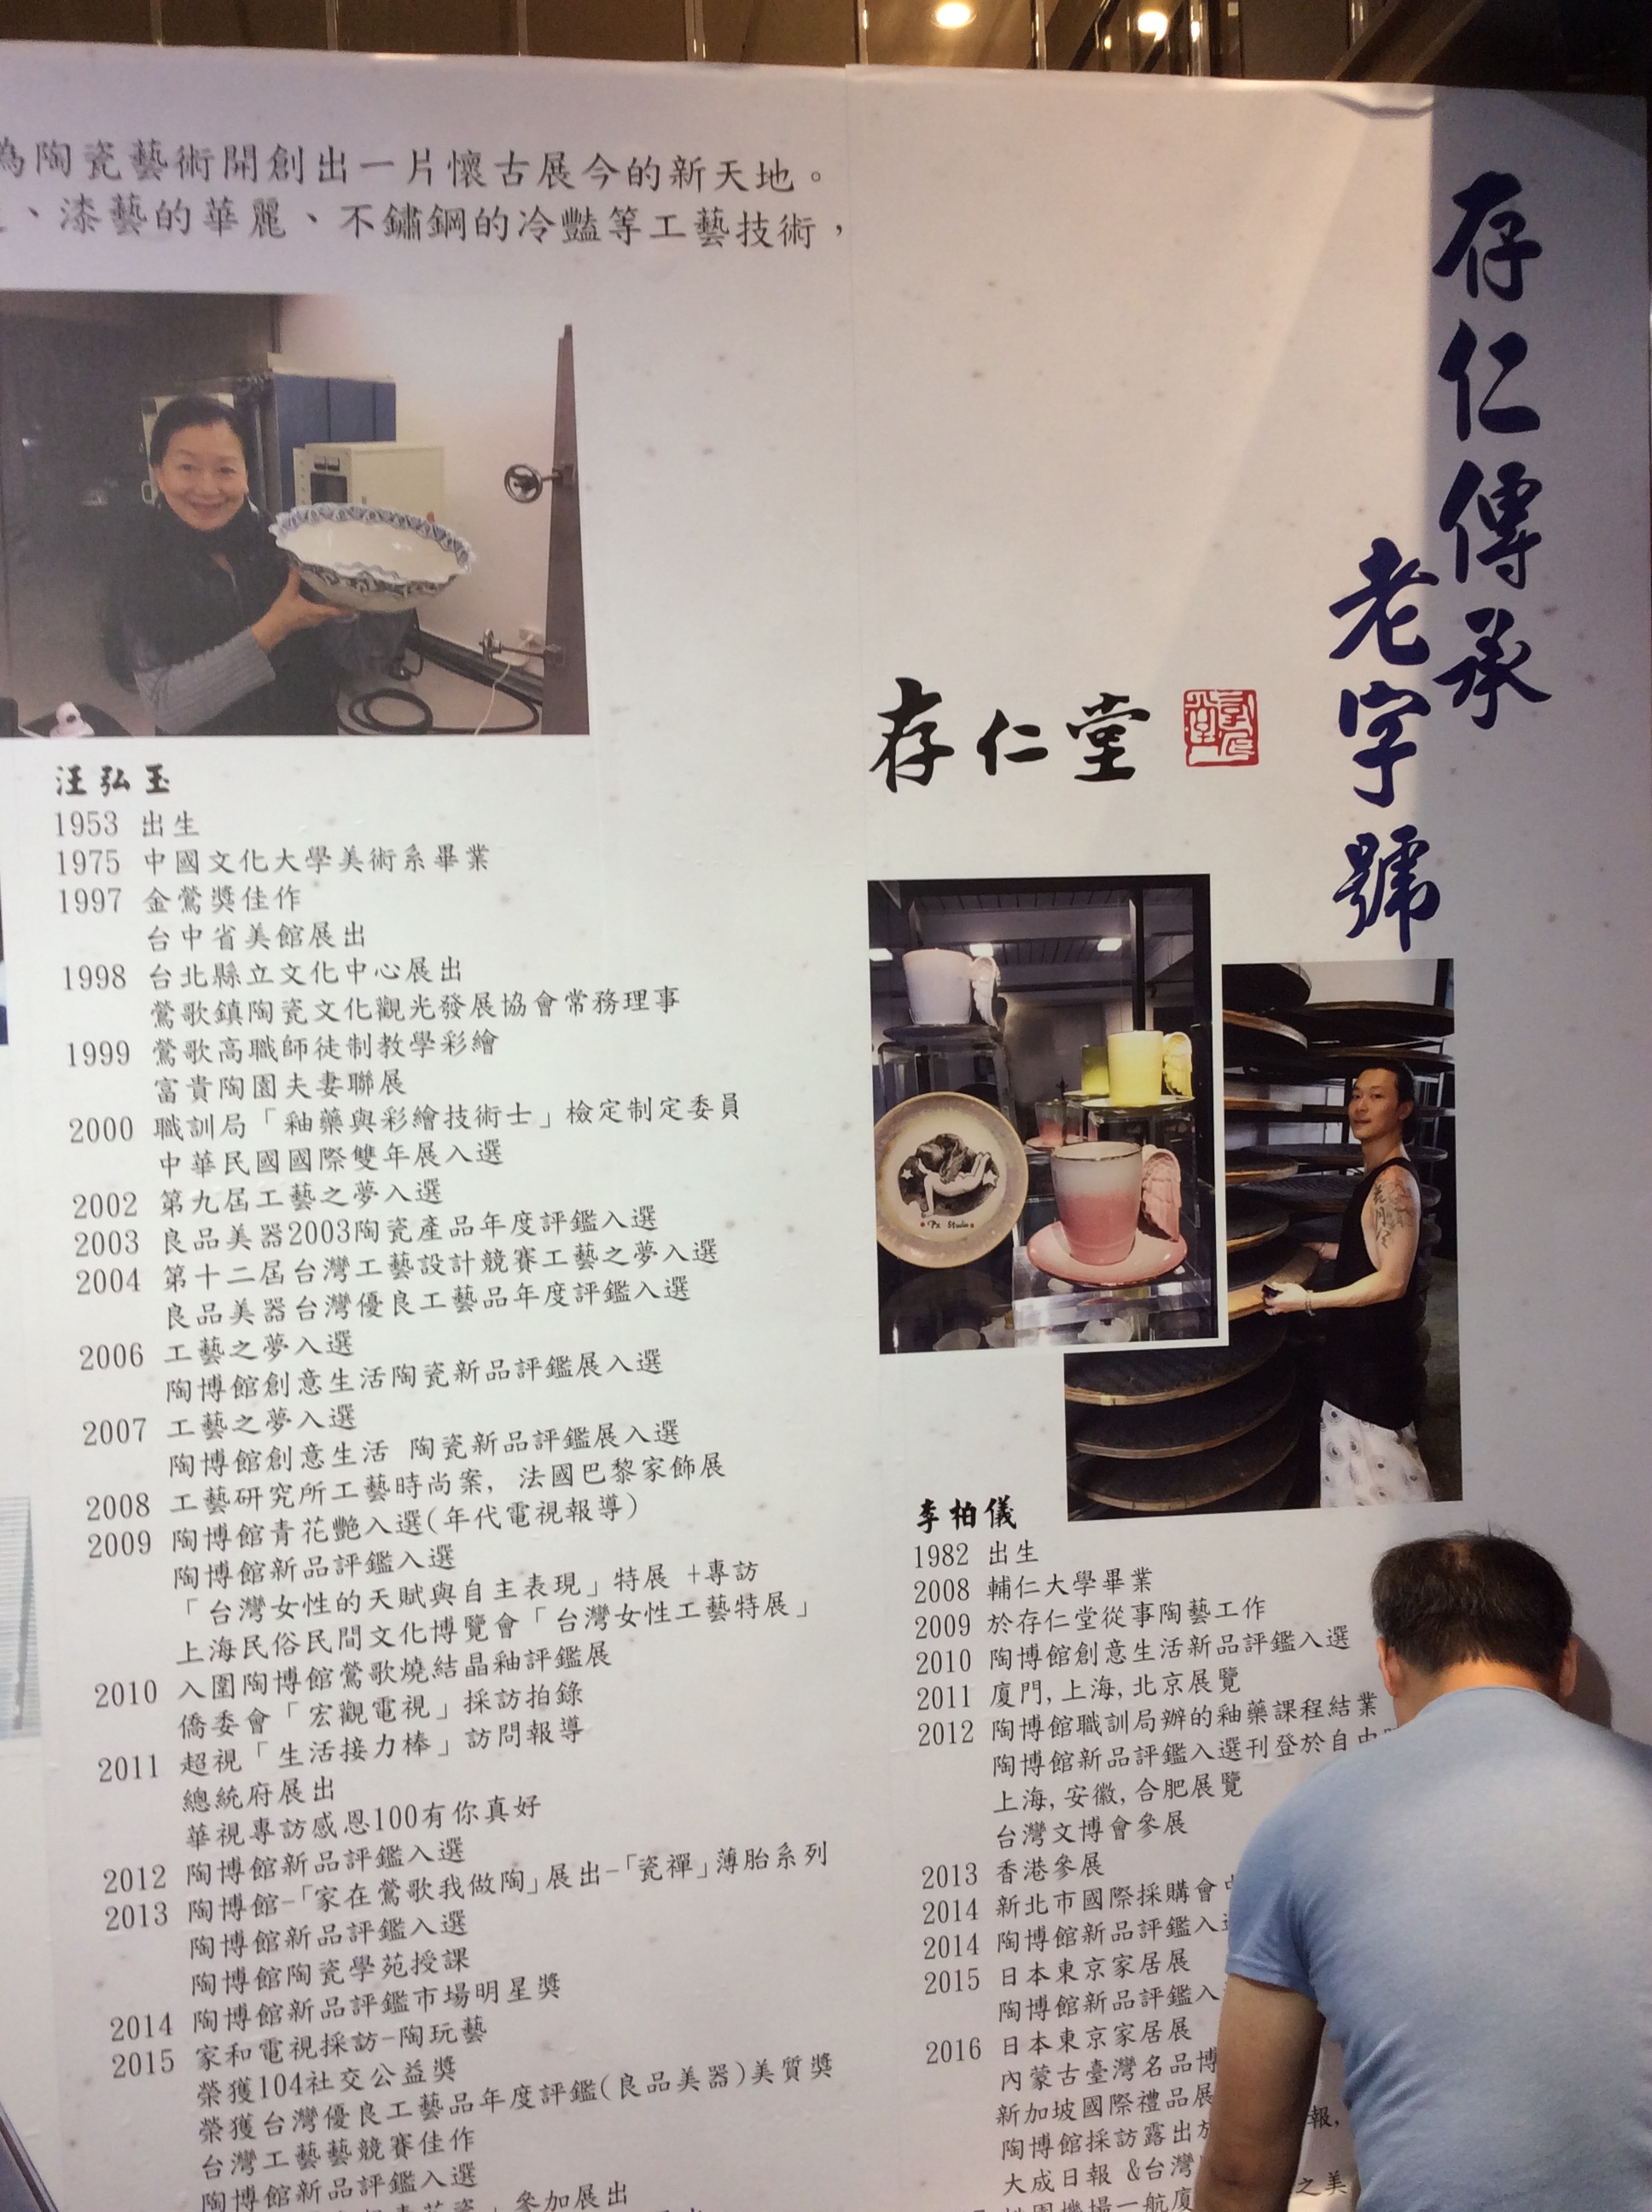 為陶瓷藝術開創出一片懷古展今的新天地。
、漆藝的華麗、不鏽鋼的冷豔等工藝技術，
存仁傳承
老字號
存仁堂
汪弘玉
1953 出生
1975 中國文化大學美術系畢業
1997 金鶯獎佳作
台中省美館展出
1998 台北縣立文化中心展出
鶯歌鎮陶瓷文化觀光發展協會常務理事
1999 鶯歌高職師徒制教學彩繪
富貴陶園夫妻聯展
2000 職訓局「釉藥與彩繪技術士」檢定制定委員
中華民國國際雙年展入選
2002 第九屆工藝之夢入選
2003 良品美器2003陶瓷產品年度評鑑入選
2004 第十二屆台灣工藝設計競賽工藝之夢入選
良品美器台灣優良工藝品年度評鑑入選
2006 工藝之夢入選
陶博館創意生活陶瓷新品評鑑展入選
2007 工藝之夢入選
陶博館創意生活 陶瓷新品評鑑展入選
2008 工藝研究所工藝時尚案, 法國巴黎家飾展
2009 陶博館青花艷入選(年代電視報導)
陶博館新品評鑑入選
「台灣女性的天賦與自主表現」特展 +專訪
上海民俗民間文化博覽會「台灣女性工藝特展」
2010 入圍陶博館鶯歌燒結晶釉評鑑展
僑委會「宏觀電視」採訪拍錄
2011 超視「生活接力棒」訪問報導
總統府展出
華視專訪感恩100有你真好
2012 陶博館新品評鑑入選
2013 陶博館-「家在鶯歌我做陶」展出-「瓷禪」薄胎系列
陶博館新品評鑑入選
陶博館陶瓷學苑授課
2014 陶博館新品評鑑市場明星獎
2015 家和電視採訪-陶玩藝
榮獲104社交公益獎
榮獲台灣優良工藝品年度評鑑(良品美器)美質獎
台灣工藝藝競賽佳作
陶博館新品評鑑入選
」參加展出
李柏儀
1982 出生
2008 輔仁大學畢業
2009 於存仁堂從事陶藝工作
2010 陶博館創意生活新品評鑑入選
2011 廈門,上海,北京展覽
2012 陶博館職訓局辦的釉藥課程結業
陶博館新品評鑑入選刊登於自由
上海,安徽,合肥展覽
台灣文博會參展
2013 香港參展
2014 新北市國際採購會
2014 陶博館新品評鑑入
2015 日本東京家居展
陶博館新品評鑑入
2016 日本東京家居展
內蒙古臺灣名品博
新加坡國際禮品展
陶博館採訪露出於 報,
大成日報 &台灣
桃園機場一航廈 之美